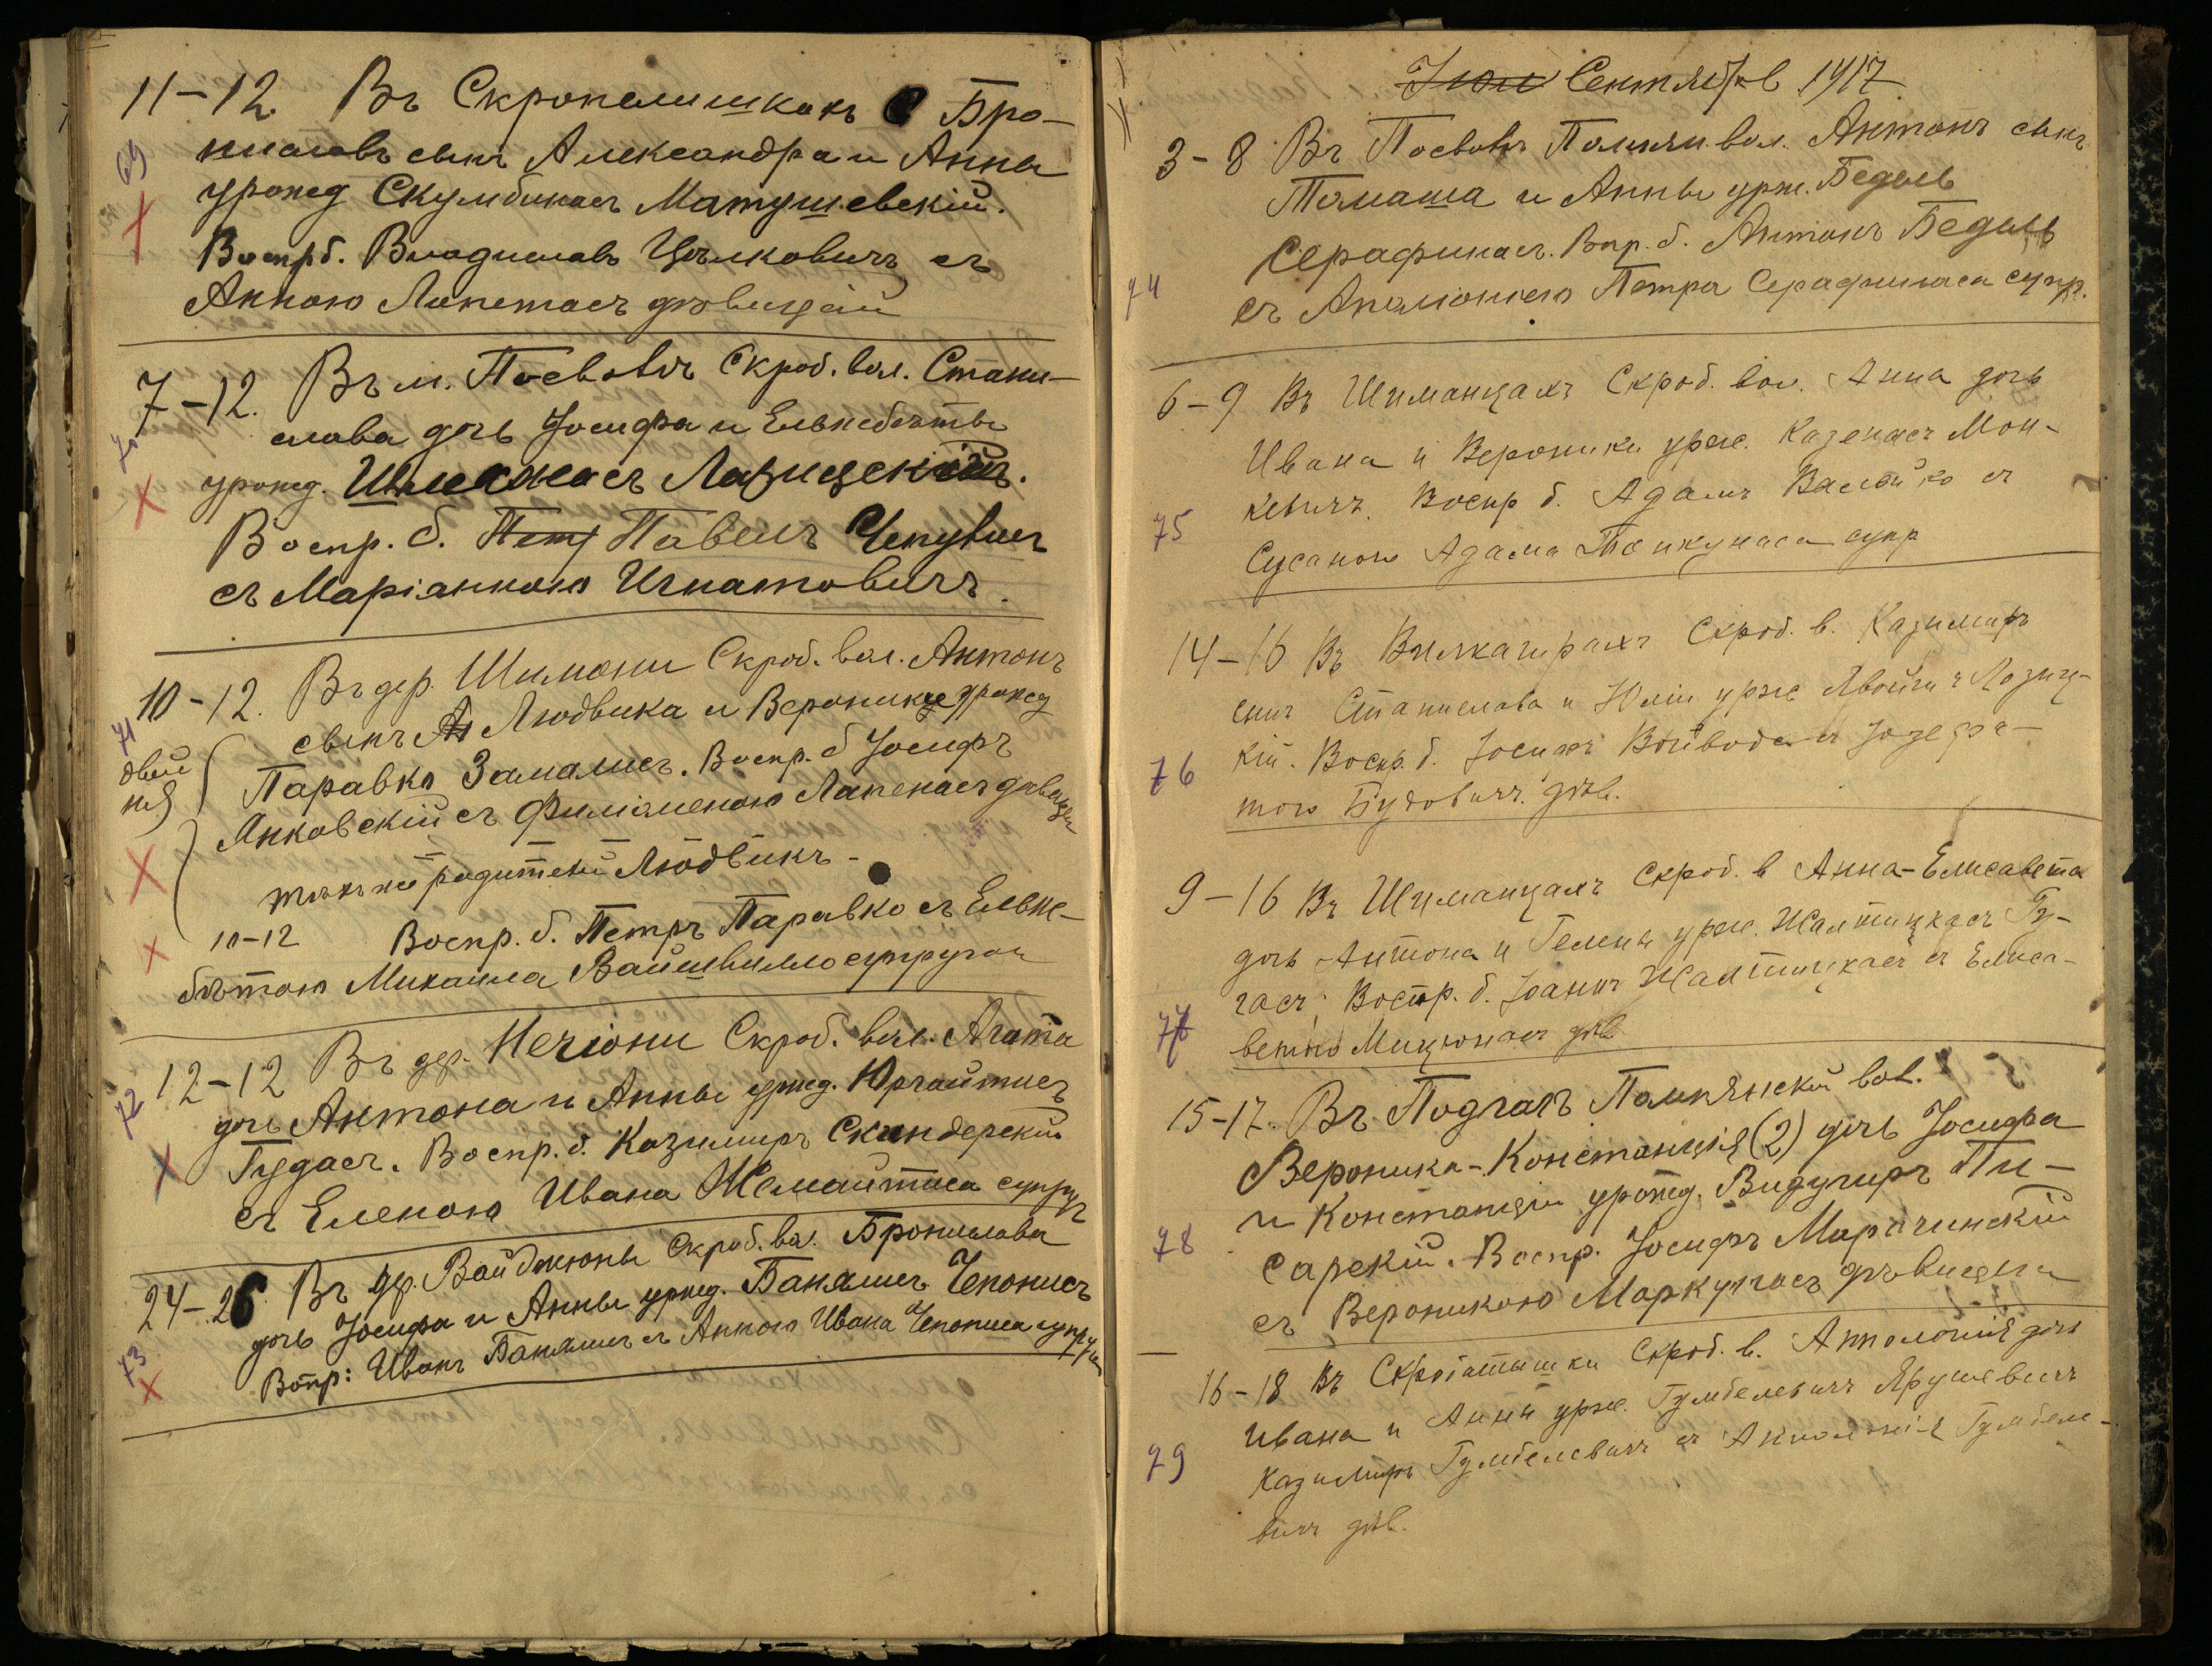 11-12. Въ Скропелишкахъ Бро-
69
ниславъ сынъ Александра и Анны
урожд Скумбинасъ Матушевскій.
Воспр б. Владиславъ Цѣлковичъ съ
Анною Лапетасъ дѣвицей
7-12. Въ м. Поевотъ Скроб. вол. Стани-
70
слава дочь Іосифа и Ельжбѣты
урожд. Лазицскій.
Воспр. б. Павелъ Чепувисъ
съ Маріанною Игнатовичъ.
10-12. Въ дер. Шимони Скроб. вол. Антонъ
71
сынъ Людвика и Вероники урожд
двой
ня
Паравко Замалисъ. Воспр. б Іосифъ
Янковскій съ Филоменою Лапенасъ дѣвицей
тѣхъ же родителей Людвикъ -
10-12 Воспр. б. Петръ Паравко съ Ельж-
бѣтою Михаила Вайшвилло супругой
12-12 Въ дер. Нечіони Скроб. вол. Агата
72
дочь Антона и Анны урожд. Юргайтисъ
Гудасъ. Воспр. б. Казимиръ Скиндерскій
съ Еленою Ивана Жемайтиса супруг
24-26 Въ др. Вайджюны Скроб. вол. Бронислава
дочь Іосифа и Анны урожд. Банялисъ Чепонисъ
73
Вопр: Иванъ Банялисъ съ Анною Ивана Чепониса супругой
Іюль Сентябрь 1917
3-8 Въ Поевотъ Помпян. вол. Антонъ сынъ
Томаша и Анны урж. Бедаль
Серафинасъ. Впр. б. Антонъ Бедаль
74
съ Аполоніею Петра Серафинаса супр.
6-9 Въ Шиманцахъ Скроб. вол. Анна дочь
Ивана и Вероники урж. Казенасъ Мон-
кевичъ. Воспр б. Адамъ Валойко съ
75
Сусаною Адама Тонкунаса супр
14-16 Въ Вилкагирахъ Скроб. в. Казимиръ
сынъ Станислава и Юліи урж Явойшъ Лозиц-
кій. Воспр. б. Іосифъ Войвода съ Іозефа-
76
тою Будовичъ. дѣв.
9-16 Въ Шиманцахъ Скроб. в Анна-Елисавета
дочь Антона и Гелены урж. Жалтицкасъ Гу-
гасъ; Воспр. б. Іоаннъ Жалтицкасъ съ Елиса-
77
ветою Мицюнасъ дѣв
15-17. Въ Подгаъ Помпянской вол.
Вероника-Констанція (2) дочь Іосифа
и Констанціи урожд. Видугиръ Пи-
78
сарскій. Воспр. Іосифъ Марцинскій
съ Вероникою Маркунасъ дѣвицей
16-18 Въ Скробтышки Скроб. в. Апполонія дочь
Ивана и Анны урж. Гумбелевичъ Ярушевичъ
79
Казимиръ Гумбелевичъ съ Апполонія Гумбеле-
вичъ дѣв.